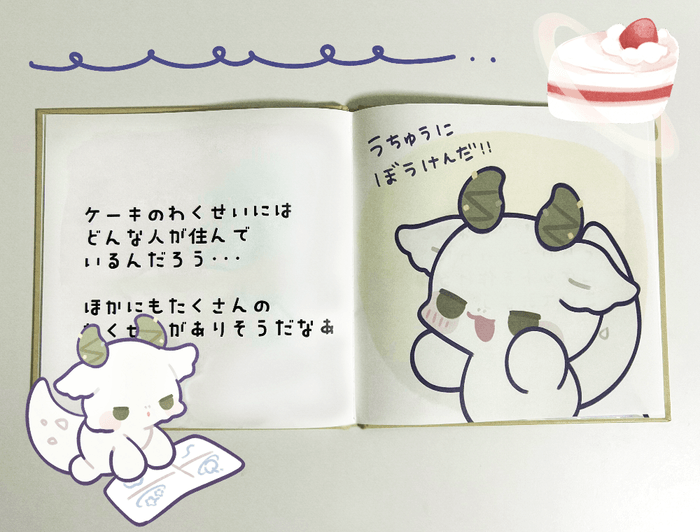 ケーキのわくせいには
どんな人が住んで
いるんだろう・・・
ほかにもたくさんの
わくせいがありそうだなぁ
うちゅうに
ぼうけんだ!!